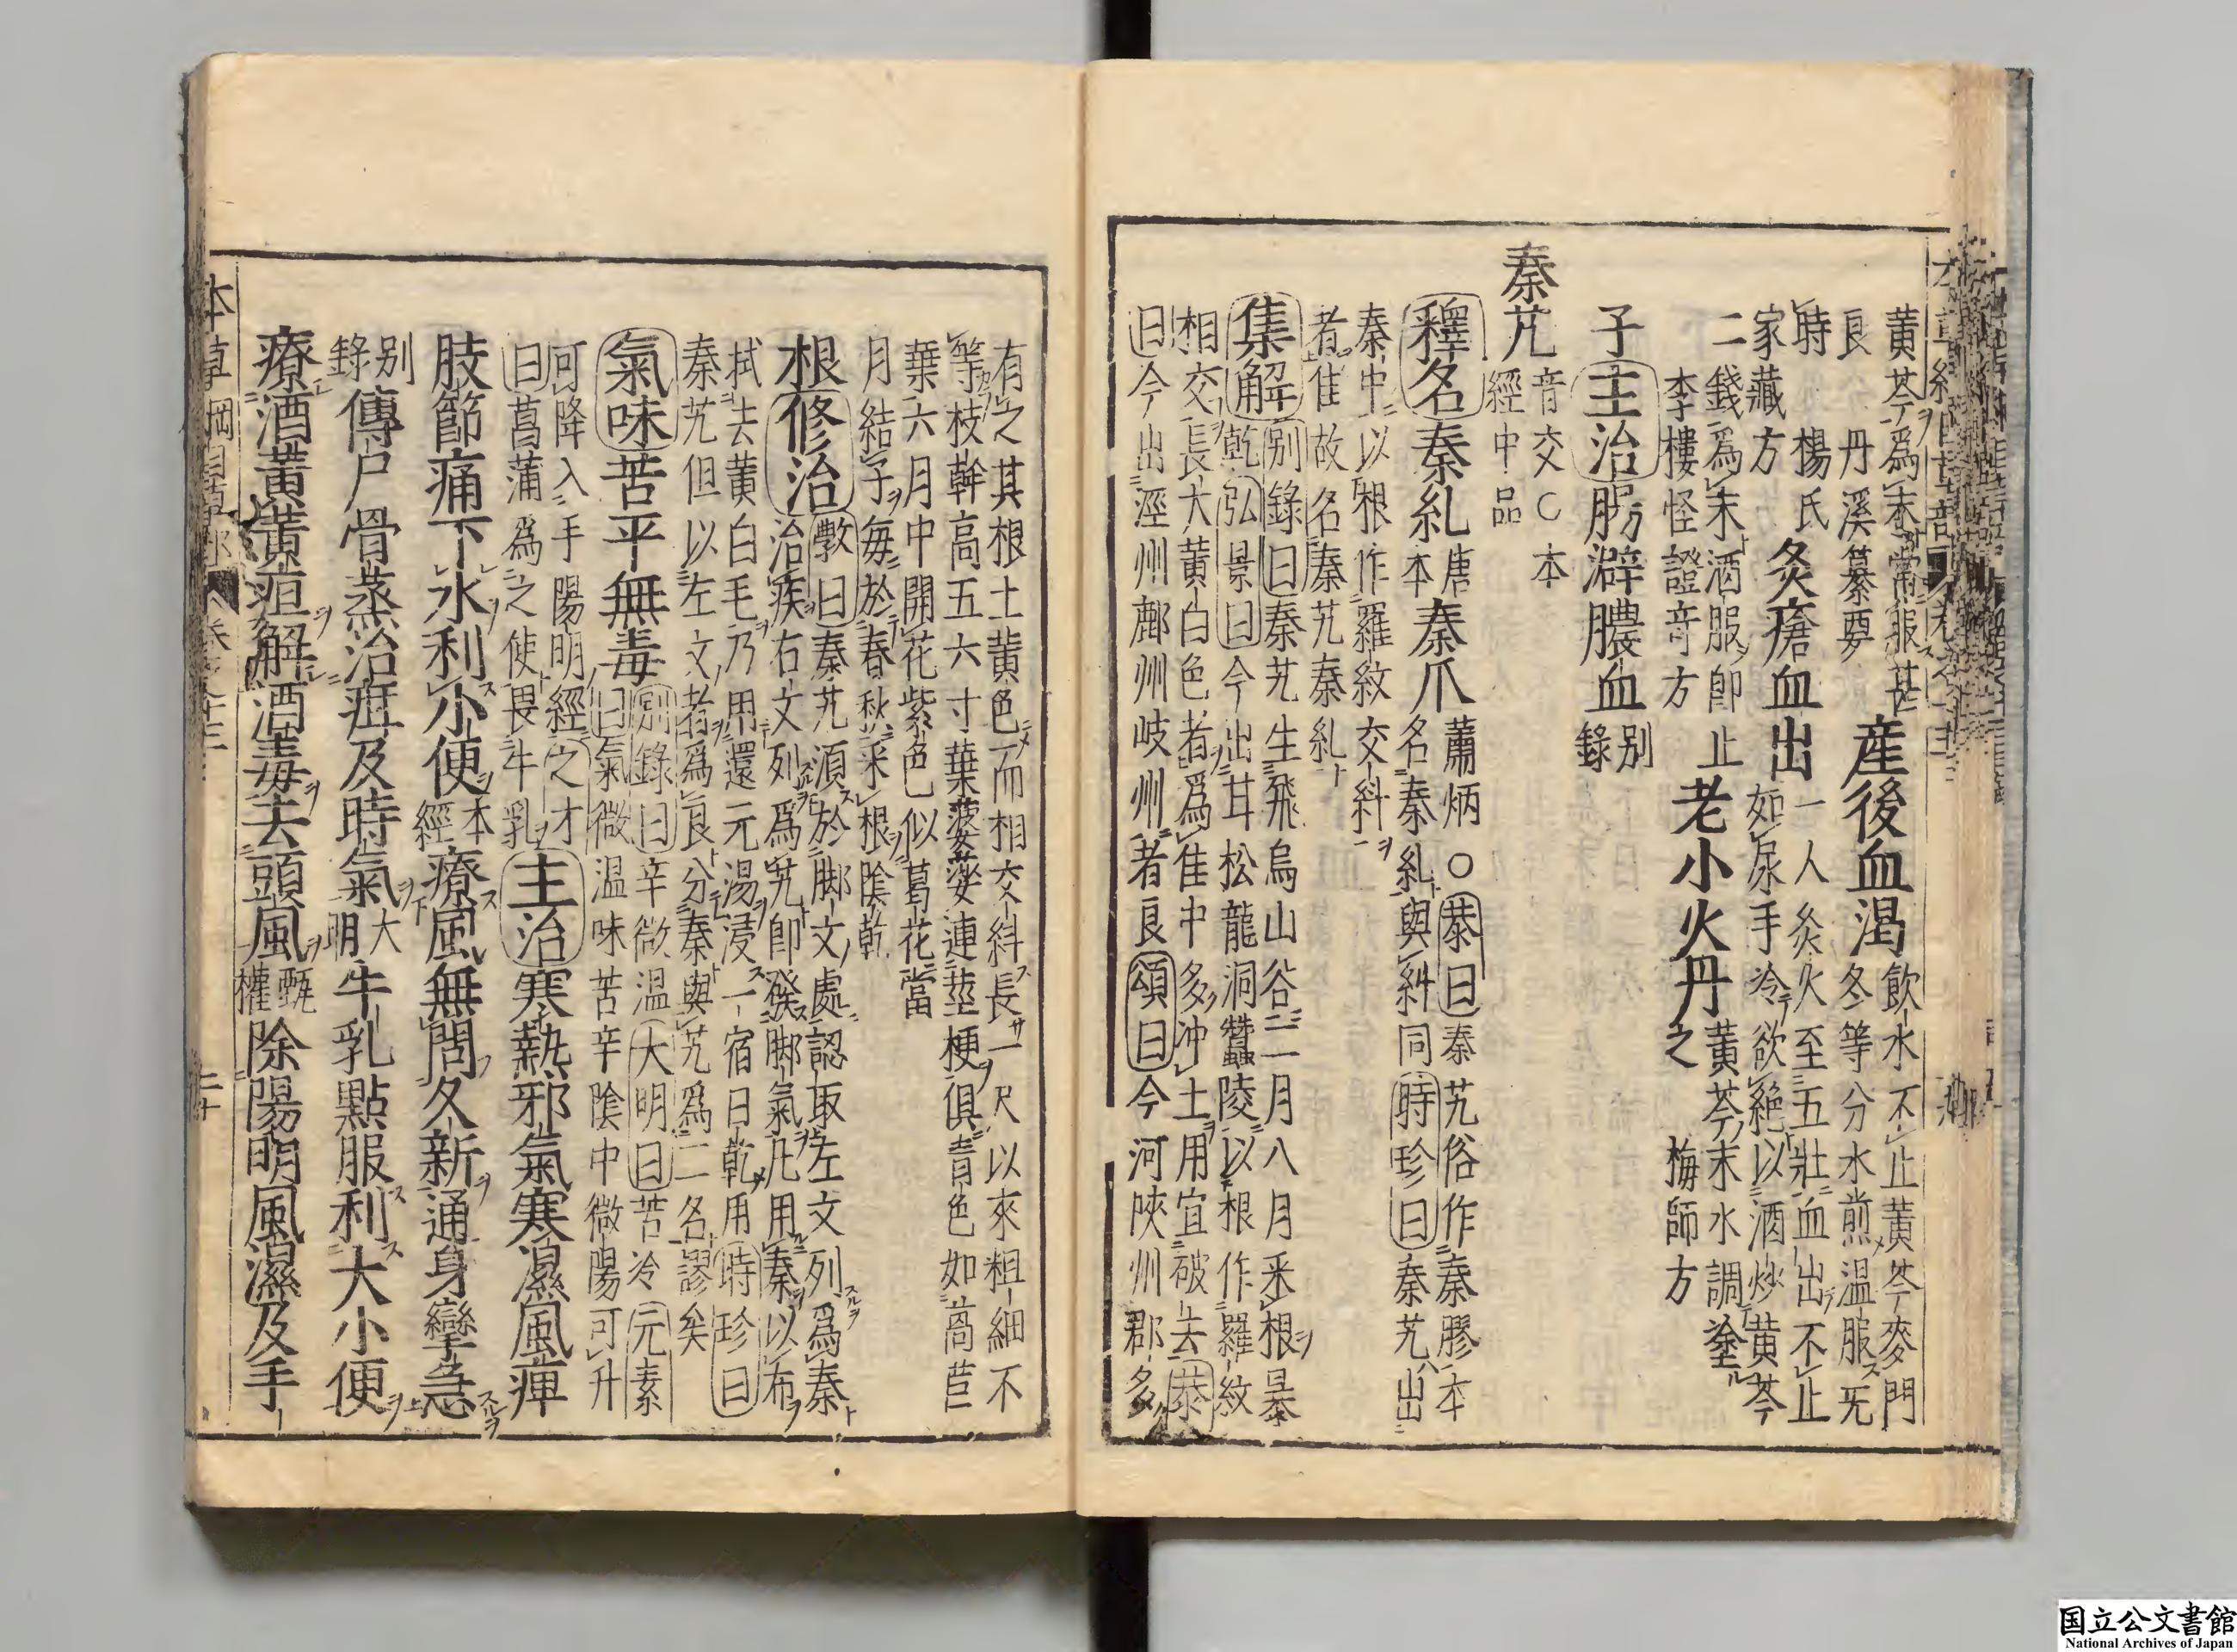 黄芩爲末常服甚
良丹溪纂要產後血渴飲水不止黄芩麥門
冬等分水煎温服无
時楊氏
家藏方灸瘡血出一人灸火至五壯血出不止
如尿手冷欲絶以酒炒黄芩
二錢爲末酒服卽止
李樓怪證竒方老小火丹黄芩末水調塗
之梅師方
子主治腸澼膿血别
錄
秦艽音交○本
經中品
釋名秦糺唐
本秦爪蕭炳○恭曰秦艽俗作秦膠本
名秦糺與糾同時珍曰秦艽出
秦中以根作羅紋交糾
者佳故名秦艽秦糺
集解别錄曰秦艽生飛烏山谷二月八月采根暴
乾弘景曰今出甘松龍洞蠶陵以根作羅紋
相交長大黄白色者爲佳中多沖土用宜破去恭
曰今出涇州鄜州岐州者良頌曰今河陜州郡多
有之其根土黄色而相交糾長一尺以來粗細不
等枝幹高五六寸葉婆娑連莖梗俱青色如萵苣
葉六月中開花紫色似葛花當
月結子每於春秋采根隂乾
根修治斆曰秦艽須於脚文處認取左文列爲秦
治疾右文列爲艽卽發脚氣凡用秦以布
拭去黄白毛乃用還元湯浸一宿日乾用時珍曰
秦艽但以左文者爲良分秦與艽爲二名謬矣
氣味苦平無毒别錄曰辛微温大明曰苦冷元素
曰氣微温味苦辛隂中微陽可升
可降入手陽明經之才
曰菖蒲爲之使畏牛乳主治寒熱邪氣寒濕風痺
肢節痛下水利小便本
經療風無問久新通身攣急
别
錄傳尸骨蒸治疳及時氣大
明牛乳點服利大小便
療酒黄黄疸解酒毒去頭風甄
權除陽明風濕及手
本草綱目草部 卷之十三
二十
国立公文書館
National Archives of Japan